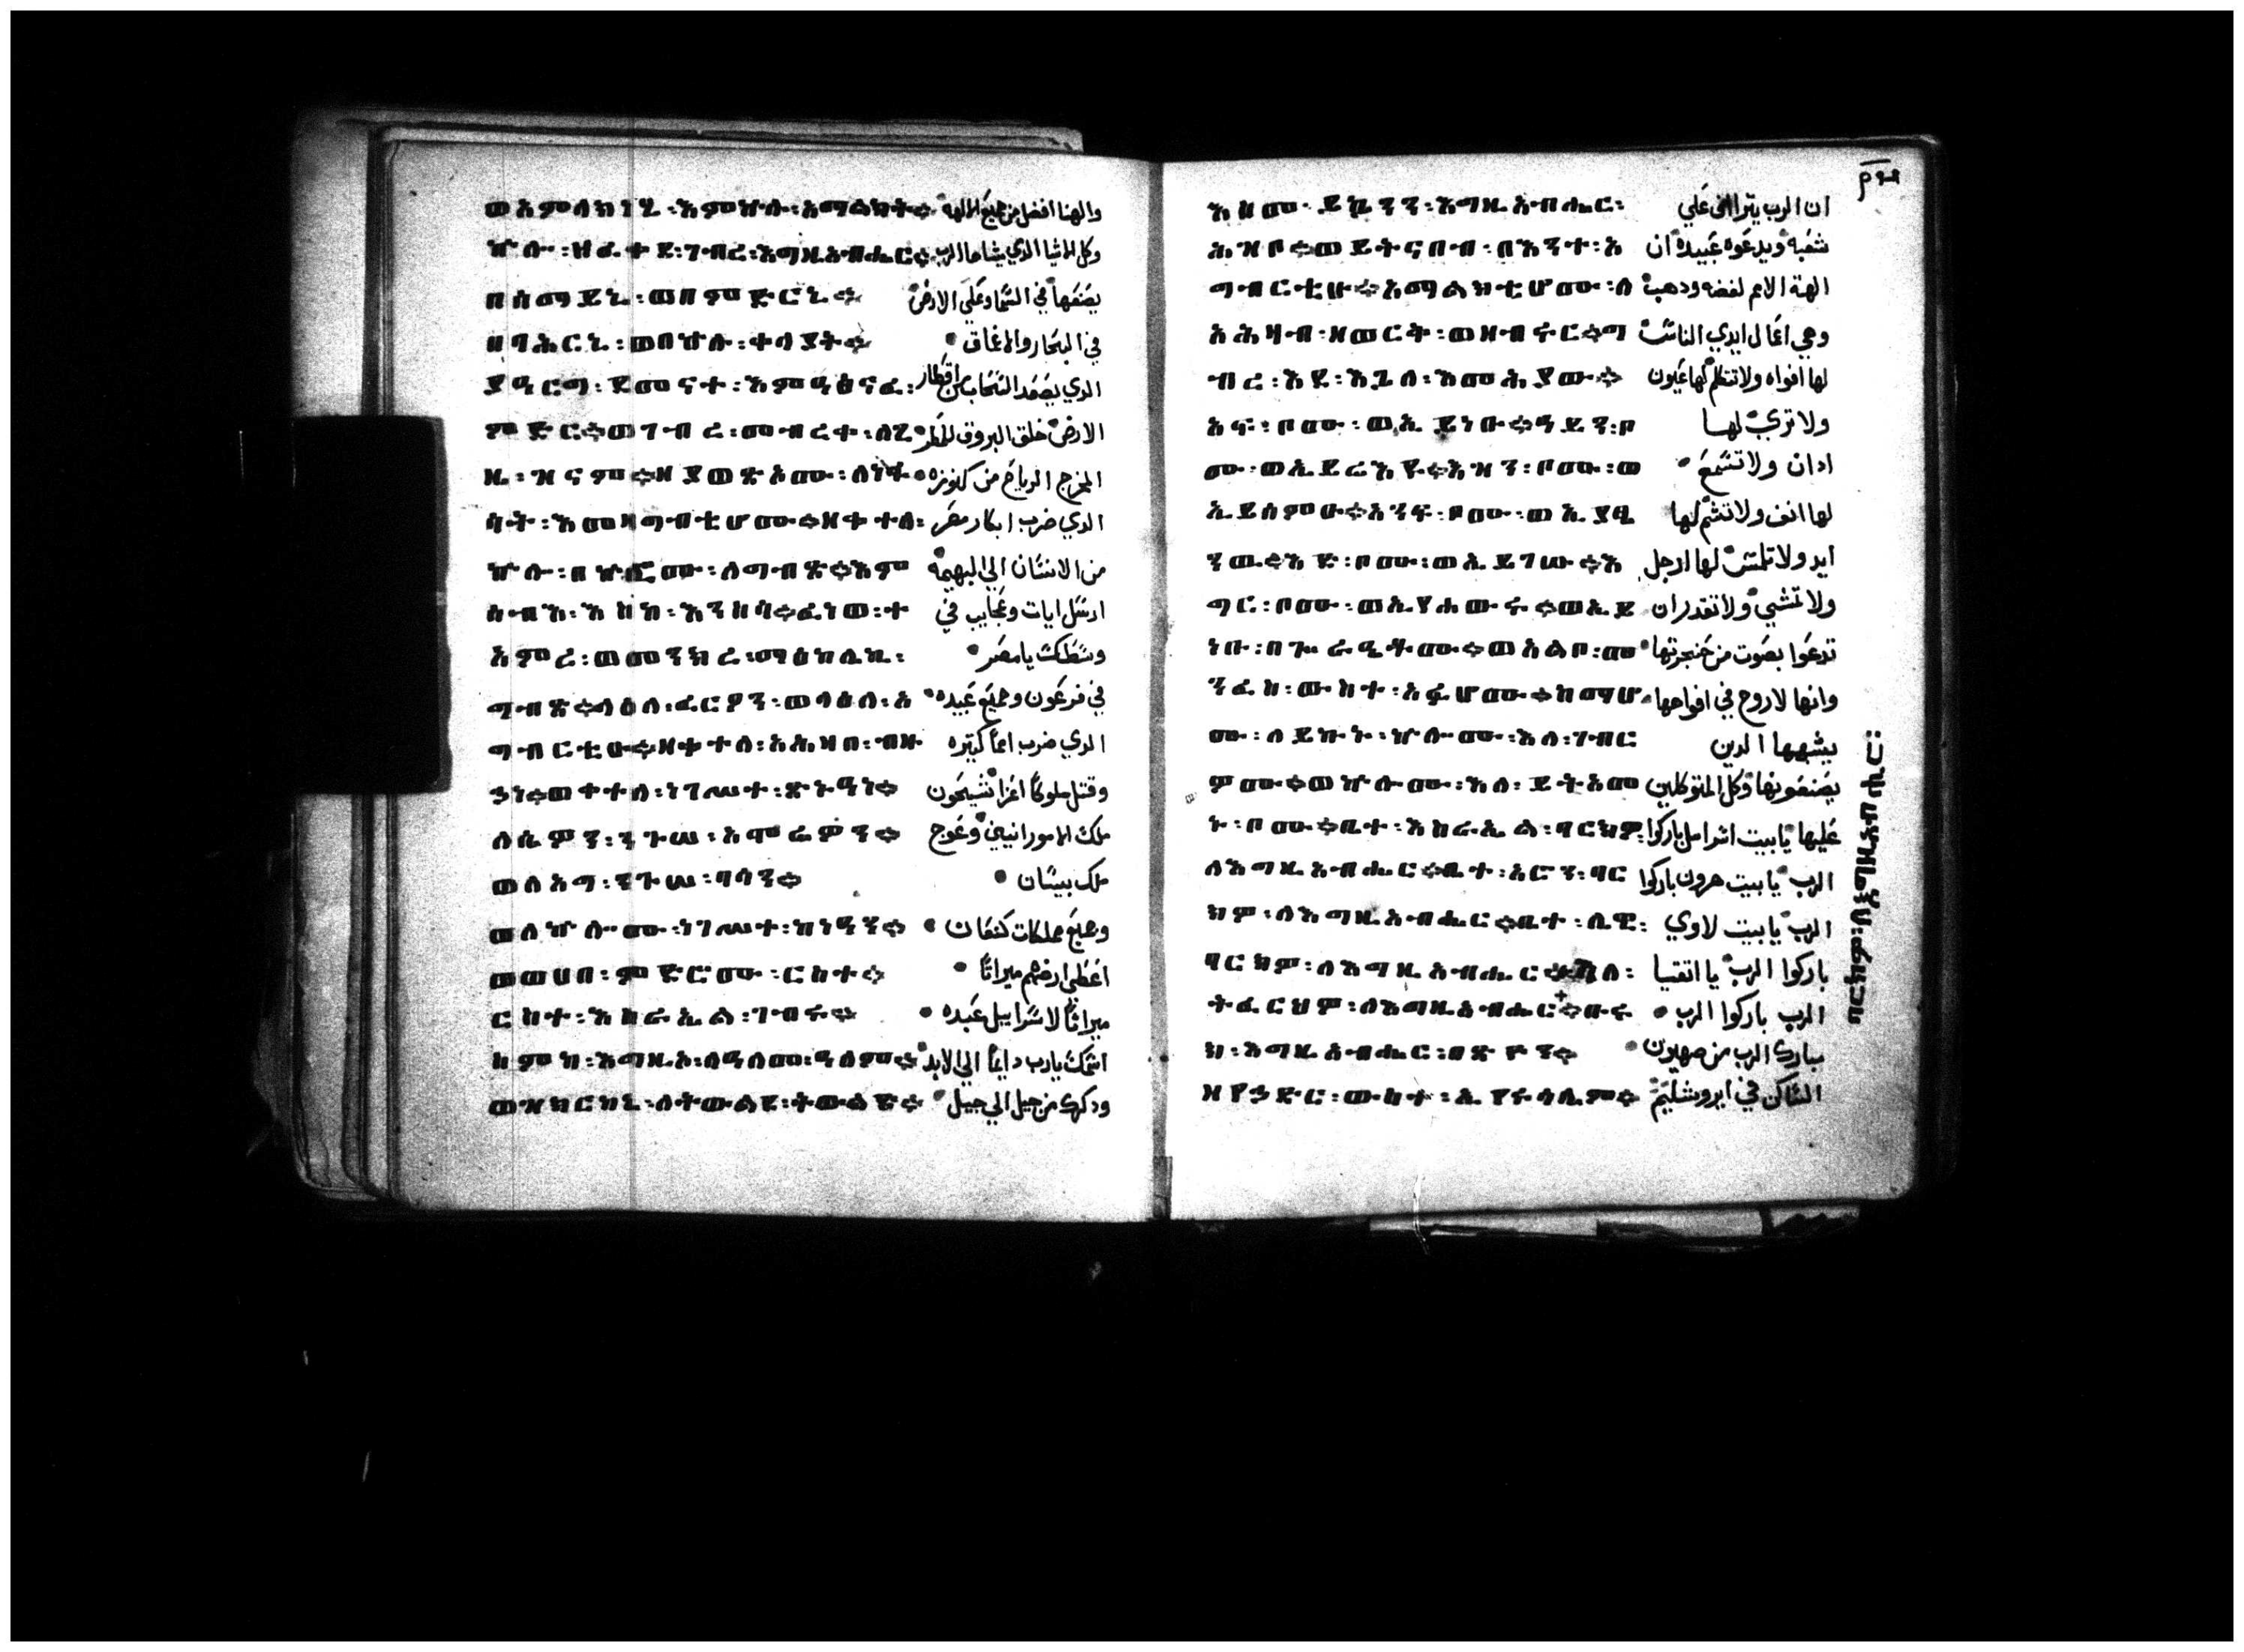 ወአምላክነሂ፡እምኵሉ፡አማልክት። والهنا افضل من جميع الالهة
ኵሎ፡ዘፈቀደ፡ገብረ፡እግዚአብሔር። وكل الاشيا الذي يشاها الرب
በሰማይኒ፡ወበምድርኒ። يصنعها في السما وعلي الارض
በባሕርኒ፡ወበኵሉ፡ቀላያት። في البحار والاعماق
ያዐርግ፡ደመናተ፡እምዐፅናፈ፡ الذي يصعد السحاب من اقطار
ምድር።ወገብረ፡መብረቀ፡ለጊ الارض خلق البروق للمطر
ዜ፡ዝናም።ዘያወፅኦሙ፡ለነፋ المخرج الرياح من كنوزه
ሳት፡እመዛግብቲሆሙ።ዘቀተለ፡ الذي ضرب ابكار مصر
ኵሎ፡በኵሮሙ፡ለግብጽ።እም من الانسان الي البهيمة
ሰብእ፡እስከ፡እንስሳ።ፈነወ፡ተ ارسل ايات وعجايب في
አምረ፡ወመንክረ፡ማዕከሌኪ፡ وسطك يا مصر
ግብጽ።ላዕለ፡ፈርዖን፡ወላዕለ፡አ في فرعون وجميع عبيده
ግብርቲሁ።ዘቀተለ፡አሕዛበ፡ብዙ الذي ضرب امما كتيره
ኃነ።ወቀተለ፡ነገሥተ፡ጽኑዓነ። وقتل ملوكا اعزا شيحون
ለሴዎን፡ንጉሠ፡አሞሬዎን። ملك الامورانيين وعوج
ወለአግ፡ንጉሠ፡ባሳን። ملك بيسان
ወለኵሎሙ፡ነገሥተ፡ከነዓን። وجميع مملكات كنعان
ወወሀበ፡ምድሮሙ፡ርስተ። اعطي ارضهم ميراتا
ርስተ፡እስራኤል፡ገብሩ። ميراتا لاسراييل عبده
ስምከ፡እግዚኦ፡ለዓለመ፡ዓለም። اسمك يارب دايما الي الابد
ወዝክርከኒ፡ለትውልደ፡ትውልድ። ودكرك من جيل الي جيل
እስመ፡ይኴንን፡እግዚአብሔር፡ ان الرب يتراف علي
ሕዝቦ።ወይትናበብ፡በእንተ፡አ شعبه ويدعوه عبيده ان
ግብርቲሁ።አማልክቲሆሙ፡ለ الهة الامم لفضه ودهب
አሕዛብ፡ዘወርቅ፡ወዘብሩር።ግ وهي اعمال ايدي الناس
ብረ፡እደ፡እጓለ፡እመሕያው። لها افواه ولا تتكلم لها عيون
አፍ፡ቦሙ፡ወኢይነቡ።ዓይን፡ቦ ولا تري لها
ሙ፡ወኢይሬእዩ።እዝን፡ቦሙ፡ወ ادان ولا تسمع
ኢይሰምዑ።አንፍ፡ቦሙ፡ወኢያፄ لها انف ولا تشم لها
ንዉ።እድ፡ቦሙ፡ወኢይገሡ።እ ايد ولا تلمس لها ارجل
ግር፡ቦሙ፡ወኢየሐውሩ።ወኢይ ولا تمشي ولا تقدر ان
ነቡ፡በጕራዒቶሙ።ወአልቦ፡መ تدعوا بصوت من حنجرتها
ንፈስ፡ውስተ፡አፉሆሙ።ከማሆ وانها لا روح في افواهها
ሙ፡ለይኩኑ፡ኵሎሙ፡እለ፡ገብር يشبهها الدين
ዎሙ።ወኵሎሙ፡እለ፡ይትአመ يصنعونها وكل المتوكلين
ኑ፡ቦሙ።ቤተ፡እስራኤል፡ባርክዎ፡ عليها يا بيت اسراييل باركوا
ለእግዚአብሔር።ቤተ፡አሮን፡ባር الرب يا بيت هرون باركوا
ክዎ፡ለእግዚአብሔር።ቤተ፡ሌዊ፡ الرب يا بيت لاوي
ባርክዎ፡ለእግዚአብሔር።እለ፡ باركوا الرب يا اتقيا
ትፈርህዎ፡ለእግዚአብሔር።ቡሩ الرب باركوا الرب
ክ፡እግዚአብሔር፡በጽዮን። مبارك الرب من صهيون
ዘየኃድር፡ውስተ፡ኢየሩሳሌም። الساكن في ايروشليم
ባርክዎ፡ለእግዚአብሔር